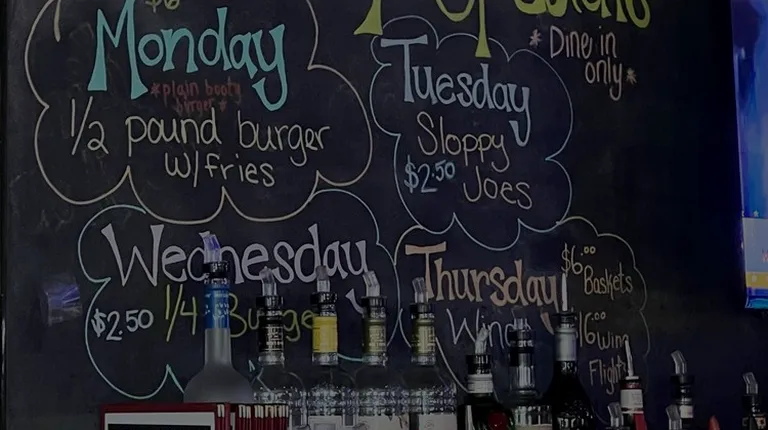 $6
Monday
*plain booty
burger*
1/2 pound burger
w/fries
*Dine in
only*
Tuesday
Sloppy
$2.50 Joes
Wednesday
$2.50 1/4 Burger
Thursday
$6.00
Baskets
$16.00 Wing
Flight